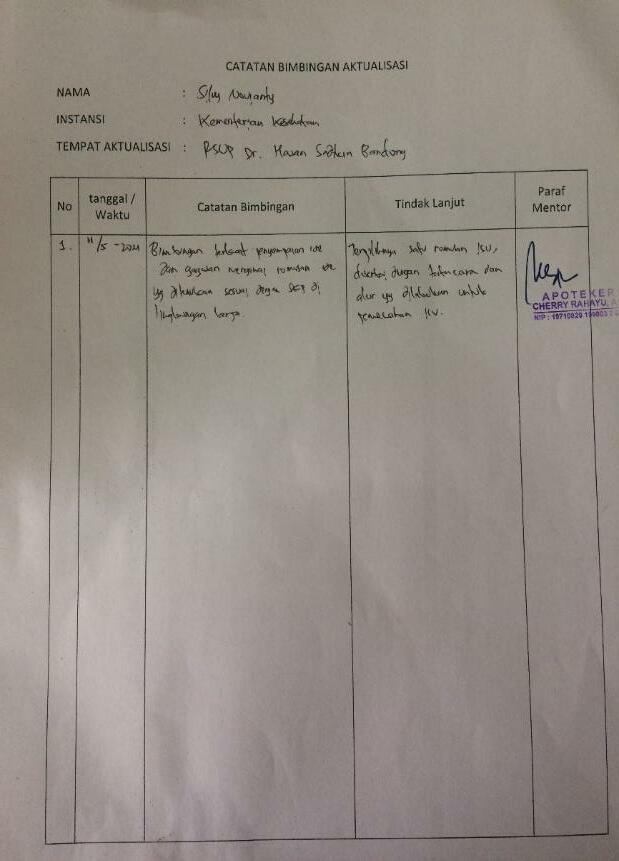 CATATAN BIMBINGAN AKTUALISASI
NAMA : Silvy Novrianty
INSTANSI : Kementerian Kesehatan
TEMPAT AKTUALISASI : RSUP Dr. Hasan Sadikin Bandung
No
tanggal / Waktu
Catatan Bimbingan
Tindak Lanjut
Paraf Mentor
1.
/5 - 2021
Bimbingan terkait penyampaian ide
dan gagasan mengenai rumusan ide
yg ditentukan sesuai dengan SKP di
lingkungan kerja.
satu rumusan isu,
disertai dengan tata cara dan
alur yg dilakukan untuk
pemecahan isu.
APOTEKER
CHERRY RAHAYU, A
NIP : 19710829 199803 2